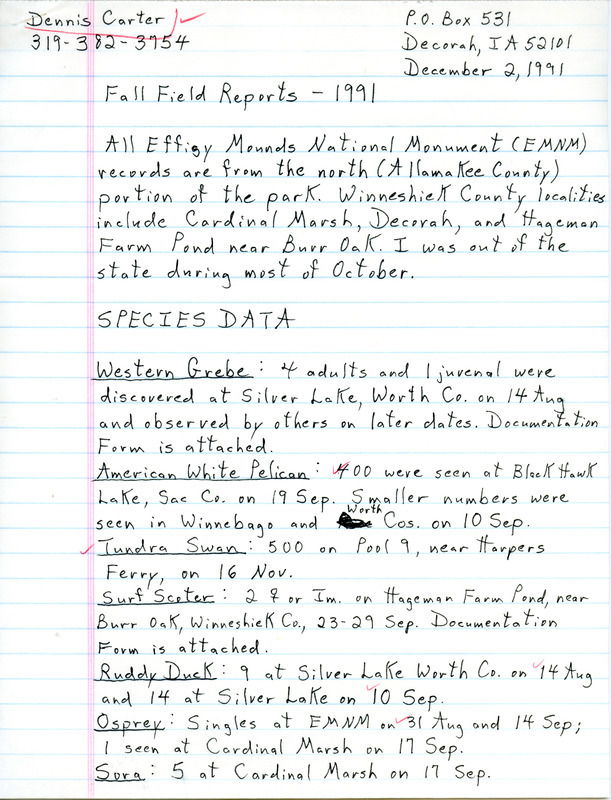 Dennis Carter
319-382-3754
P.O. Box 531
Decorah, IA 52101
December 2, 1991
Fall Field Reports - 1991
All Effigy Mounds National Monument (EMNM)
records are from the north (Allamakee County)
portion of the park. Winneshiek County localities
include Cardinal Marsh, Decorah, and Hageman
Farm Pond near Burr Oak. I was out of the
state during most of October.
SPECIES DATA
Western Grebe: 4 adults and 1 juvenal were
discovered at Silver Lake, Worth Co. on 14 Aug
and observed by others on later dates. Documentation
Form is attached.
American White Pelican: 400 were seen at Black Hawk
Lake, Sac Co. on 19 Sep. Smaller numbers were
seen in Winnebago and Worth Cos. on 10 Sep.
Tundra Swan: 500 on Pool 9, near Harpers
Ferry, on 16 Nov.
Surf Scoter: 2 ♀ or Im. on Hageman Farm Pond, near
Burr Oak, Winneshiek Co., 23-29 Sep. Documentation
Form is attached.
Ruddy Duck: 9 at Silver Lake Worth Co. on 14 Aug
and 14 at Silver Lake on 10 Sep.
Osprey: Singles at EMNM on 31 Aug and 14 Sep;
1 seen at Cardinal Marsh on 17 Sep.
Sora: 5 at Cardinal Marsh on 17 Sep.